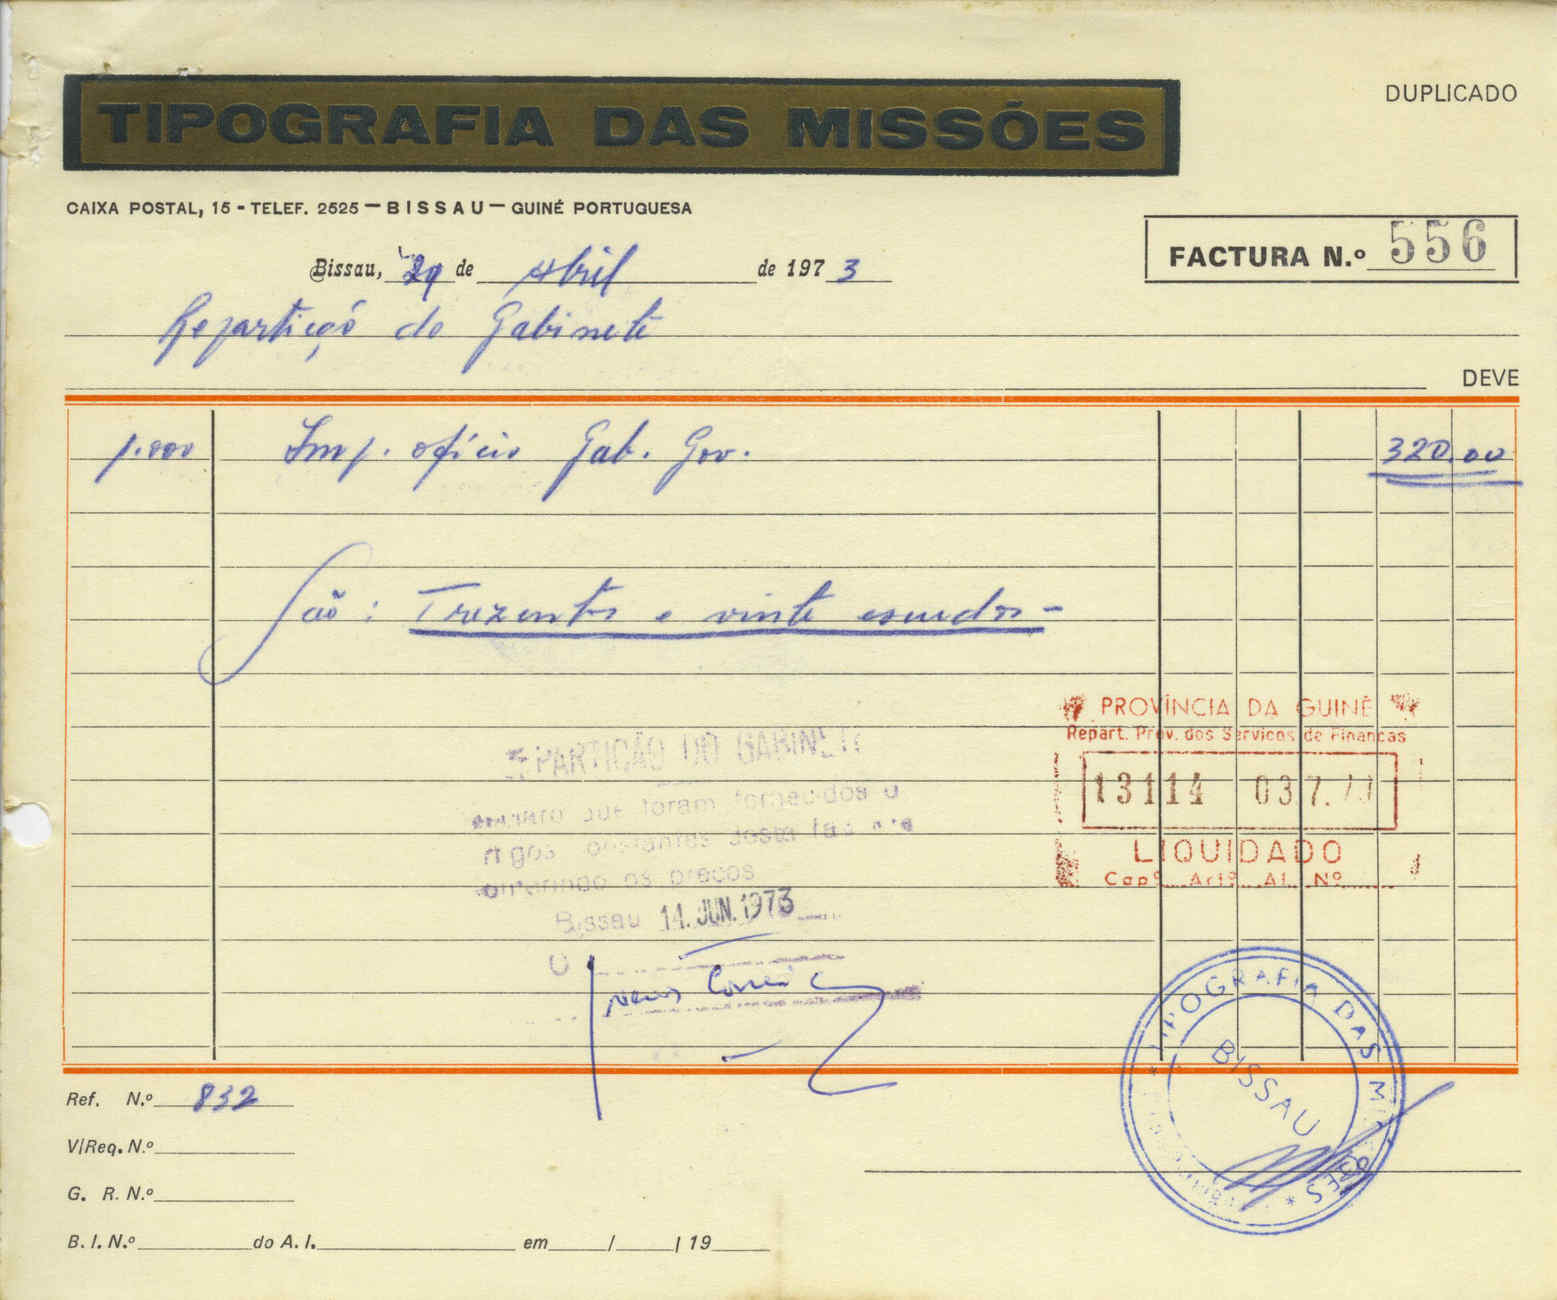 DUPLICADO
TIPOGRAFIA DAS MISSÕES
CAIXA POSTAL, 15 - TELEF. 2525 — BISSAU — GUINÉ PORTUGUESA
FACTURA N.º 556
Bissau, 29 de Abril de 1973
Repartição do Gabinete
DEVE
1.000 Imp. ofício Gab. Gov. 320.00
São: Trezentos e vinte escudos -
PROVÍNCIA DA GUINÉ
Repart. Prov. dos Serviços de Finanças
13114 03.7.
LIQUIDADO
Cap.º Art.º Al. Nº
REPARTIÇÃO DO GABINETE
que foram fornecidos
constantes desta
os preços
Bissau 14. JUN. 1973
O
TIPOGRAFIA DAS MISSÕES
BISSAU
Ref. N.º 832
V/Req. N.º
G. R. N.º
B. I. N.º do A. I. em / / 19